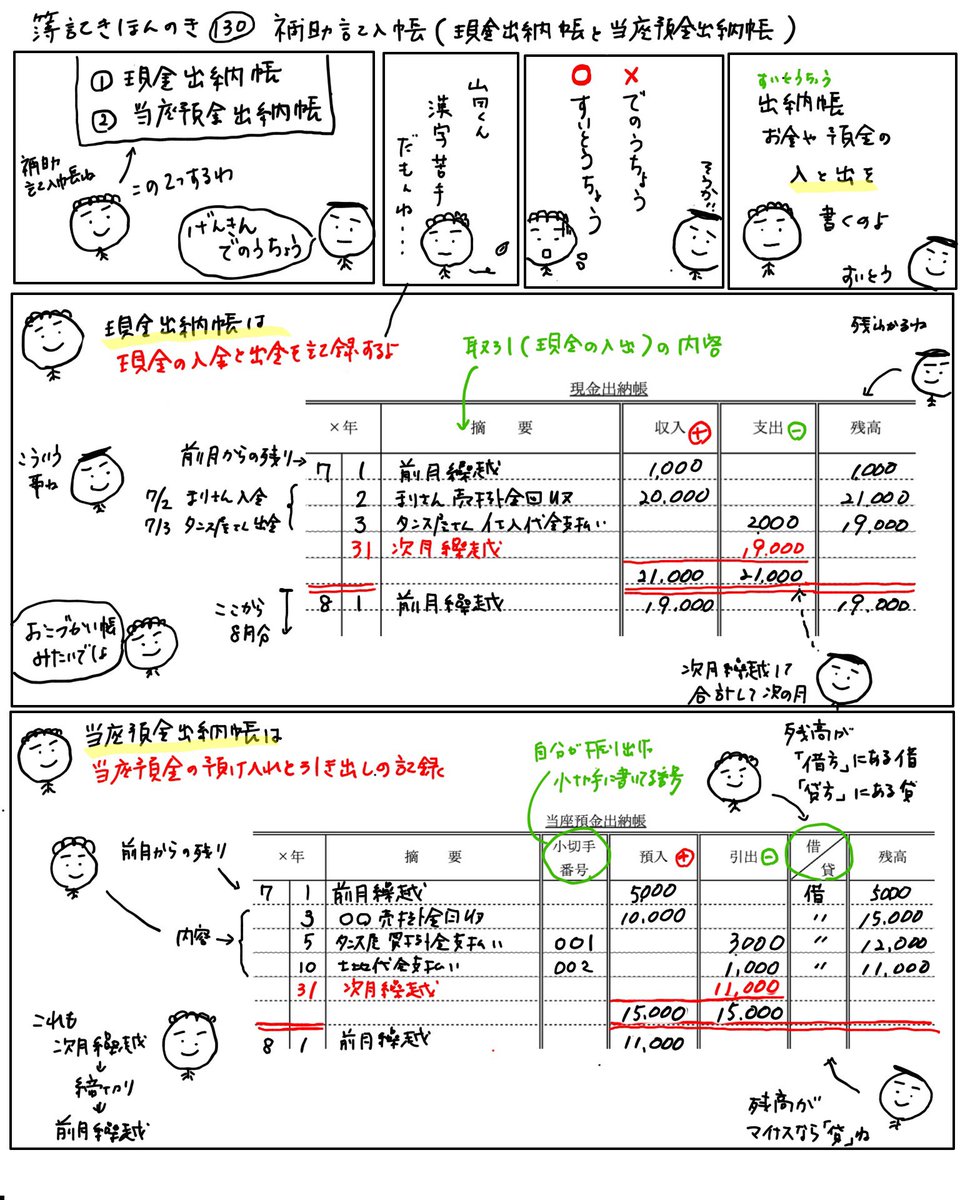 簿記きほんのき 130 補助記入帳(現金出納帳と当座預金出納帳)
① 現金出納帳
② 当座預金出納帳
補助
記入帳ね
この2つするわ
げんきん
でのうちょう
山田くん
漢字苦手
だもんね...
×でのうちょう
○すいとうちょう
そうか!!
すいとうちょう
出納帳
お金や預金の
入と出を
書くのよ
すいとう
現金出納帳は
現金の入金と出金を記録するよ
取引(現金の入出)の内容
残高わかるね
現金出納帳
×年 摘要 収入 + 支出 - 残高
こういう
事ね
前月からの残り→
7 1 前月繰越 1,000 1,000
7/2 まりさん入金
2 まりさん売掛金回収 20,000 21,000
7/3 タンス屋さん出金
3 タンス屋さん仕入代金支払い 2000 19,000
31 次月繰越 19,000
21,000 21,000
8 1 前月繰越 19,000 19,000
ここから
8月分
おこづかい帳
みたいでしょ
次月繰越して
合計して次の月
当座預金出納帳は
当座預金の預け入れと引き出しの記録
自分が振り出した
小切手に書いてる番号
残高が
「借方」にある借
「貸方」にある貸
当座預金出納帳
×年 摘要 小切手番号 預入 + 引出 - 借/貸 残高
前月からの残り
7 1 前月繰越 5000 借 5000
3 〇〇売掛金回収 10,000 〃 15,000
内容→
5 タンス屋買掛金支払い 001 3000 〃 12,000
10 土地代金支払い 002 1,000 〃 11,000
31 次月繰越 11,000
15,000 15,000
8 1 前月繰越 11,000
これも
次月繰越
↓
締切り
↓
前月繰越
残高が
マイナスなら「貸」ね